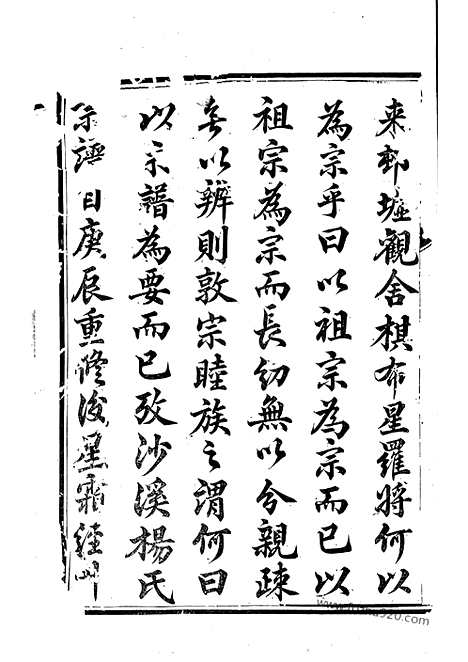 来邨墟觀舍棋布星羅將何以
為宗乎曰以祖宗為宗而已以
祖宗為宗而長幼無以分親疎
無以辨則敦宗睦族之謂何曰
以宗譜為要而已攷沙溪楊氏
宗譜自庚辰重修後星霜經